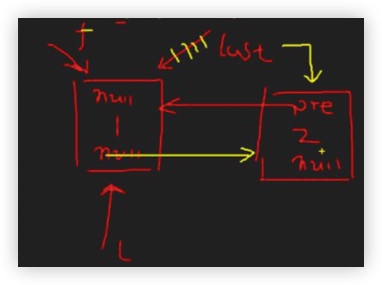 f
last
null
1
null
pre
2
null
L